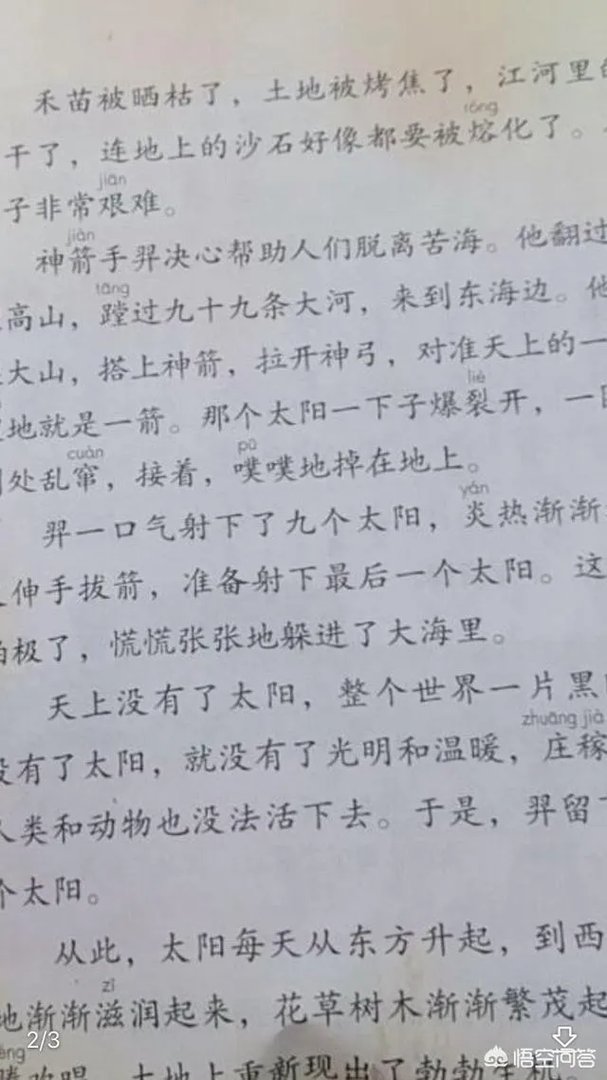 禾苗被晒枯了，土地被烤焦了，江河里的
róng
干了，连地上的沙石好像都要被熔化了。
jiān
子非常艰难。
jiàn
神箭手羿决心帮助人们脱离苦海。他翻过
tāng
高山，蹚过九十九条大河，来到东海边。他
大山，搭上神箭，拉开神弓，对准天上的一
liè
地就是一箭。那个太阳一下子爆裂开，一
cuàn pū
处乱窜，接着，噗噗地掉在地上。
yán
羿一口气射下了九个太阳，炎热渐渐
伸手拔箭，准备射下最后一个太阳。这
极了，慌慌张张地躲进了大海里。
天上没有了太阳，整个世界一片黑
zhuāng jià
没有了太阳，就没有了光明和温暖，庄稼
人类和动物也没法活下去。于是，羿留
个太阳。
从此，太阳每天从东方升起，到西
zī
地渐渐滋润起来，花草树木渐渐繁茂起
欢唱，大地上重新现出了勃勃生机
2/3
悟空问答